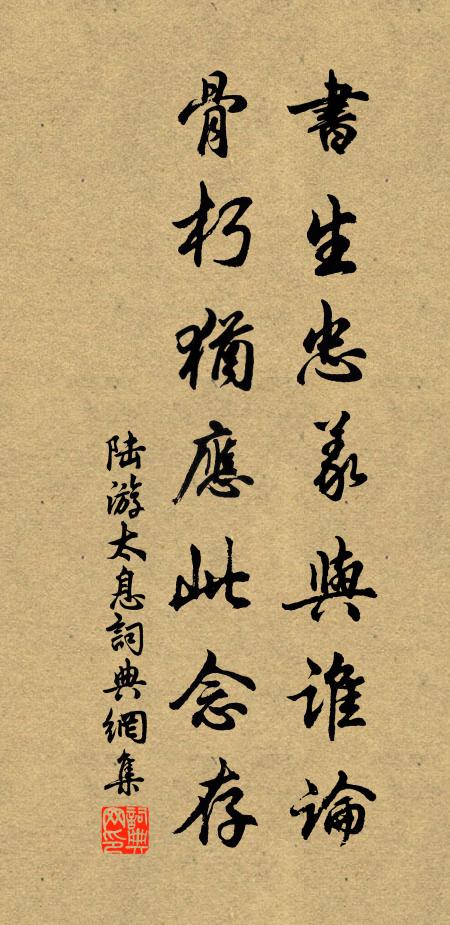 書生忠義與誰論
骨朽猶應此念存
陸游太息詞典網集
詞典網印